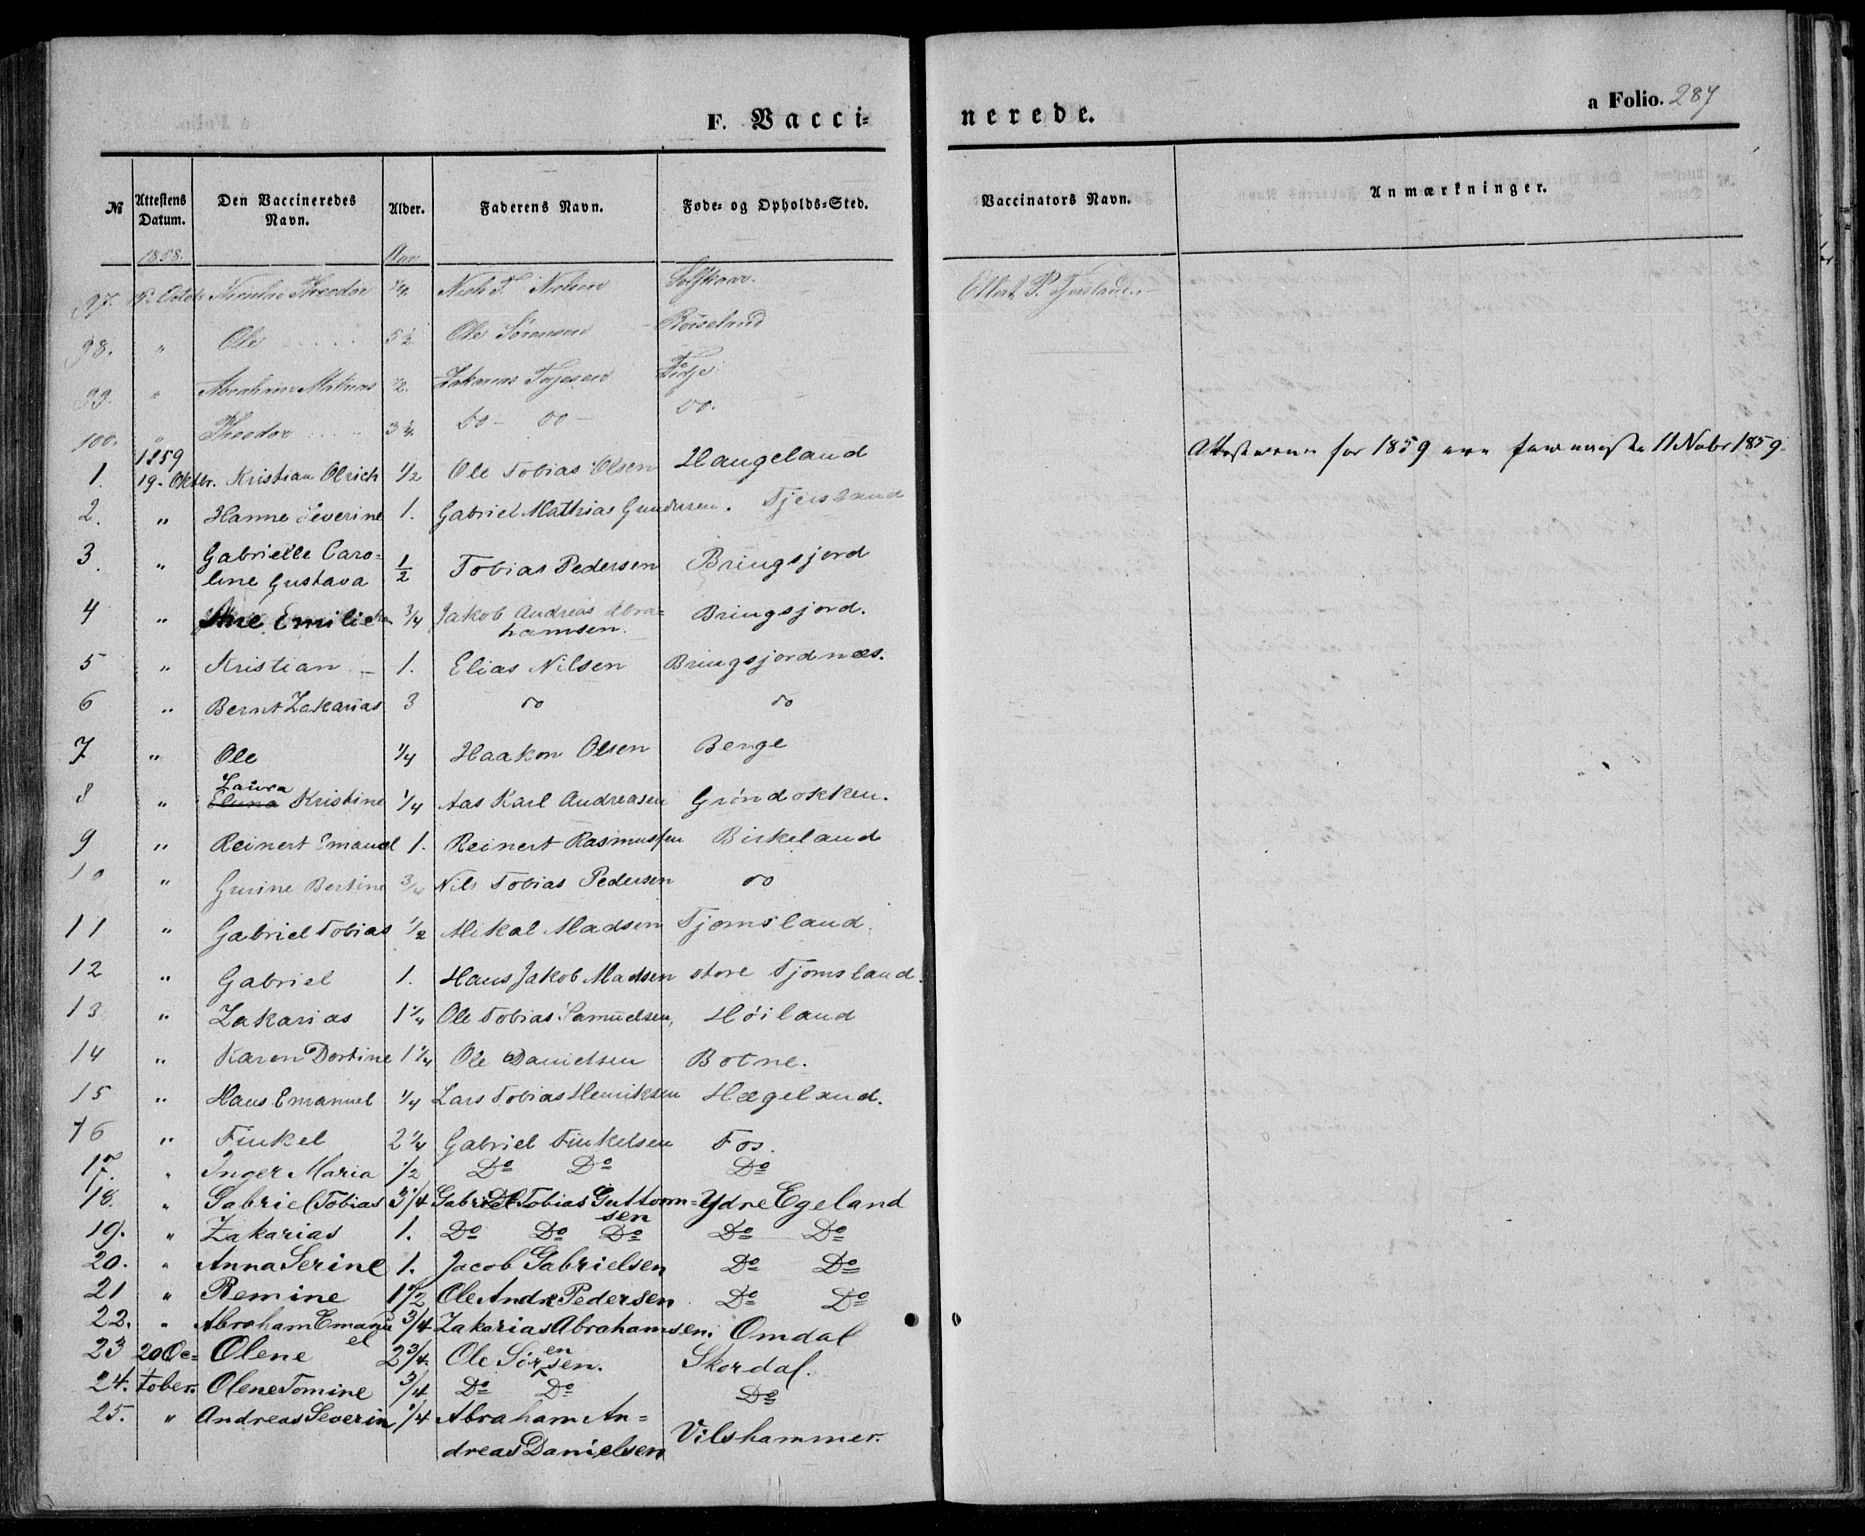 F. Vacci-
nerede.
a Folio. 287
№ Attestens Datum. Den Vaccineredes Navn. Alder. Faderens Navn. Føde- og Opholds-Sted. Vaccinators Navn. Anmærkninger.
1858. Aar
97. Theodor 1/4 Nielsen
98. " Ole 5 1/2 Ole Sørensen Røiseland
99. " Abraham 1/2
100. " Theodor 3 1/4 do - do - do.
1859
1. 19. Oktbr. Kristian Olrich 1/2 Ole Tobias Olsen Haugeland for 1859 11 Nobr 1859.
2. " Hanne Severine 1. Gabriel Mathias Gundersen. Tjersland
3. " Gabrielle Caro-
line Gustava 1/2 Tobias Pedersen Bringsjord
4 " Ane Emilie 3/4 Jakob Andreas Abra-
hamsen. Bringsjord.
5 " Kristian 1. Elias Nilsen Bringsjordnæs.
6 " Bernt Zakarias 3 do do
7 " Ole 1/4 Haakon Olsen Berge
Laura
8 " Kristine 1/4 Aas Karl Andreasen Gröndokken.
9 " Reinert Emanuel 1. Reinert Rasmussen Birkeland
10 " Gurine Bertine 3/4 Nils Tobias Pedersen do
11 " Gabriel Tobias 1/2 Mikal Madsen Tjomsland.
12 " Gabriel 1. Hans Jakob Madsen store Tjomsland.
13 " Zakarias 1 1/4 Ole Tobias Samuelsen, Höiland
14 " Karen Dortine 1 1/4 Ole Danielsen Botne.
15 " Hans Emanuel 1/4 Lars Tobias Henriksen Hægeland.
16 " Finkel 2 1/4 Gabriel Finkelsen Fos.
17. " Inger Maria 1/2 Do Do Do
18. " Gabriel Tobias 3/4 Gabriel Tobias Guttorm-
sen Ydre Egeland
19. " Zakarias 1. Do Do Do Do Do
20. " Anna Serine 1. Jacob Gabrielsen Do Do
21 " Remine 1 1/2 Ole Andr Pedersen Do Do
22. " Abraham Emanu
el 3/4 Zakarias Abrahamsen. Omdal
23 20 Oc- Olene 2 3/4. Ole Sörensen. Skordal.
24. tober. Olene Tomine 3/4 Do Do Do
25. " Andreas Severin 1/4 Abraham An-
dreas Danielsen Vilshammer.